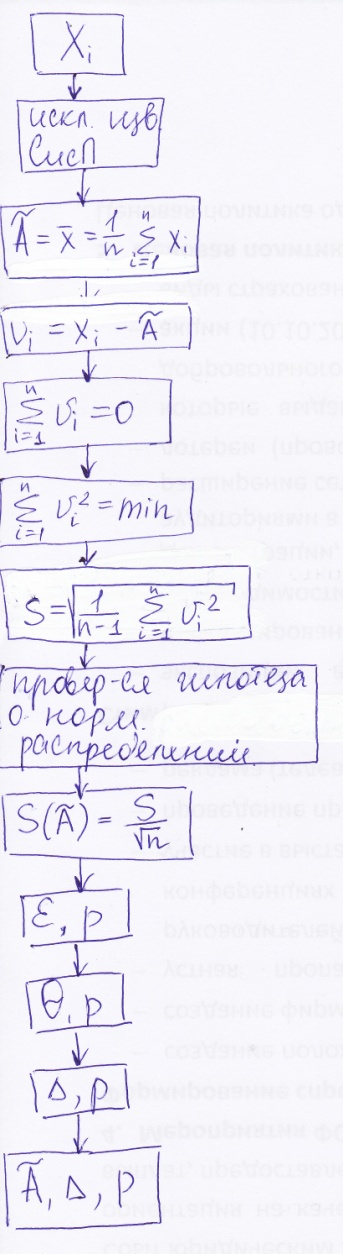 Xi
искл. изв.
СисП
Ã = x̄ = 1/n Σ_{i=1}^{n} xi
υi = xi − Ã
Σ_{i=1}^{n} υi = 0
Σ_{i=1}^{n} υi² = min
S = √(1/(n-1) Σ_{i=1}^{n} υi²)
провер-ся гипотеза
о норм.
распределении
S(Ã) = S/√n
Ɛ, p
Θ, p
Δ, p
Ã, Δ, p